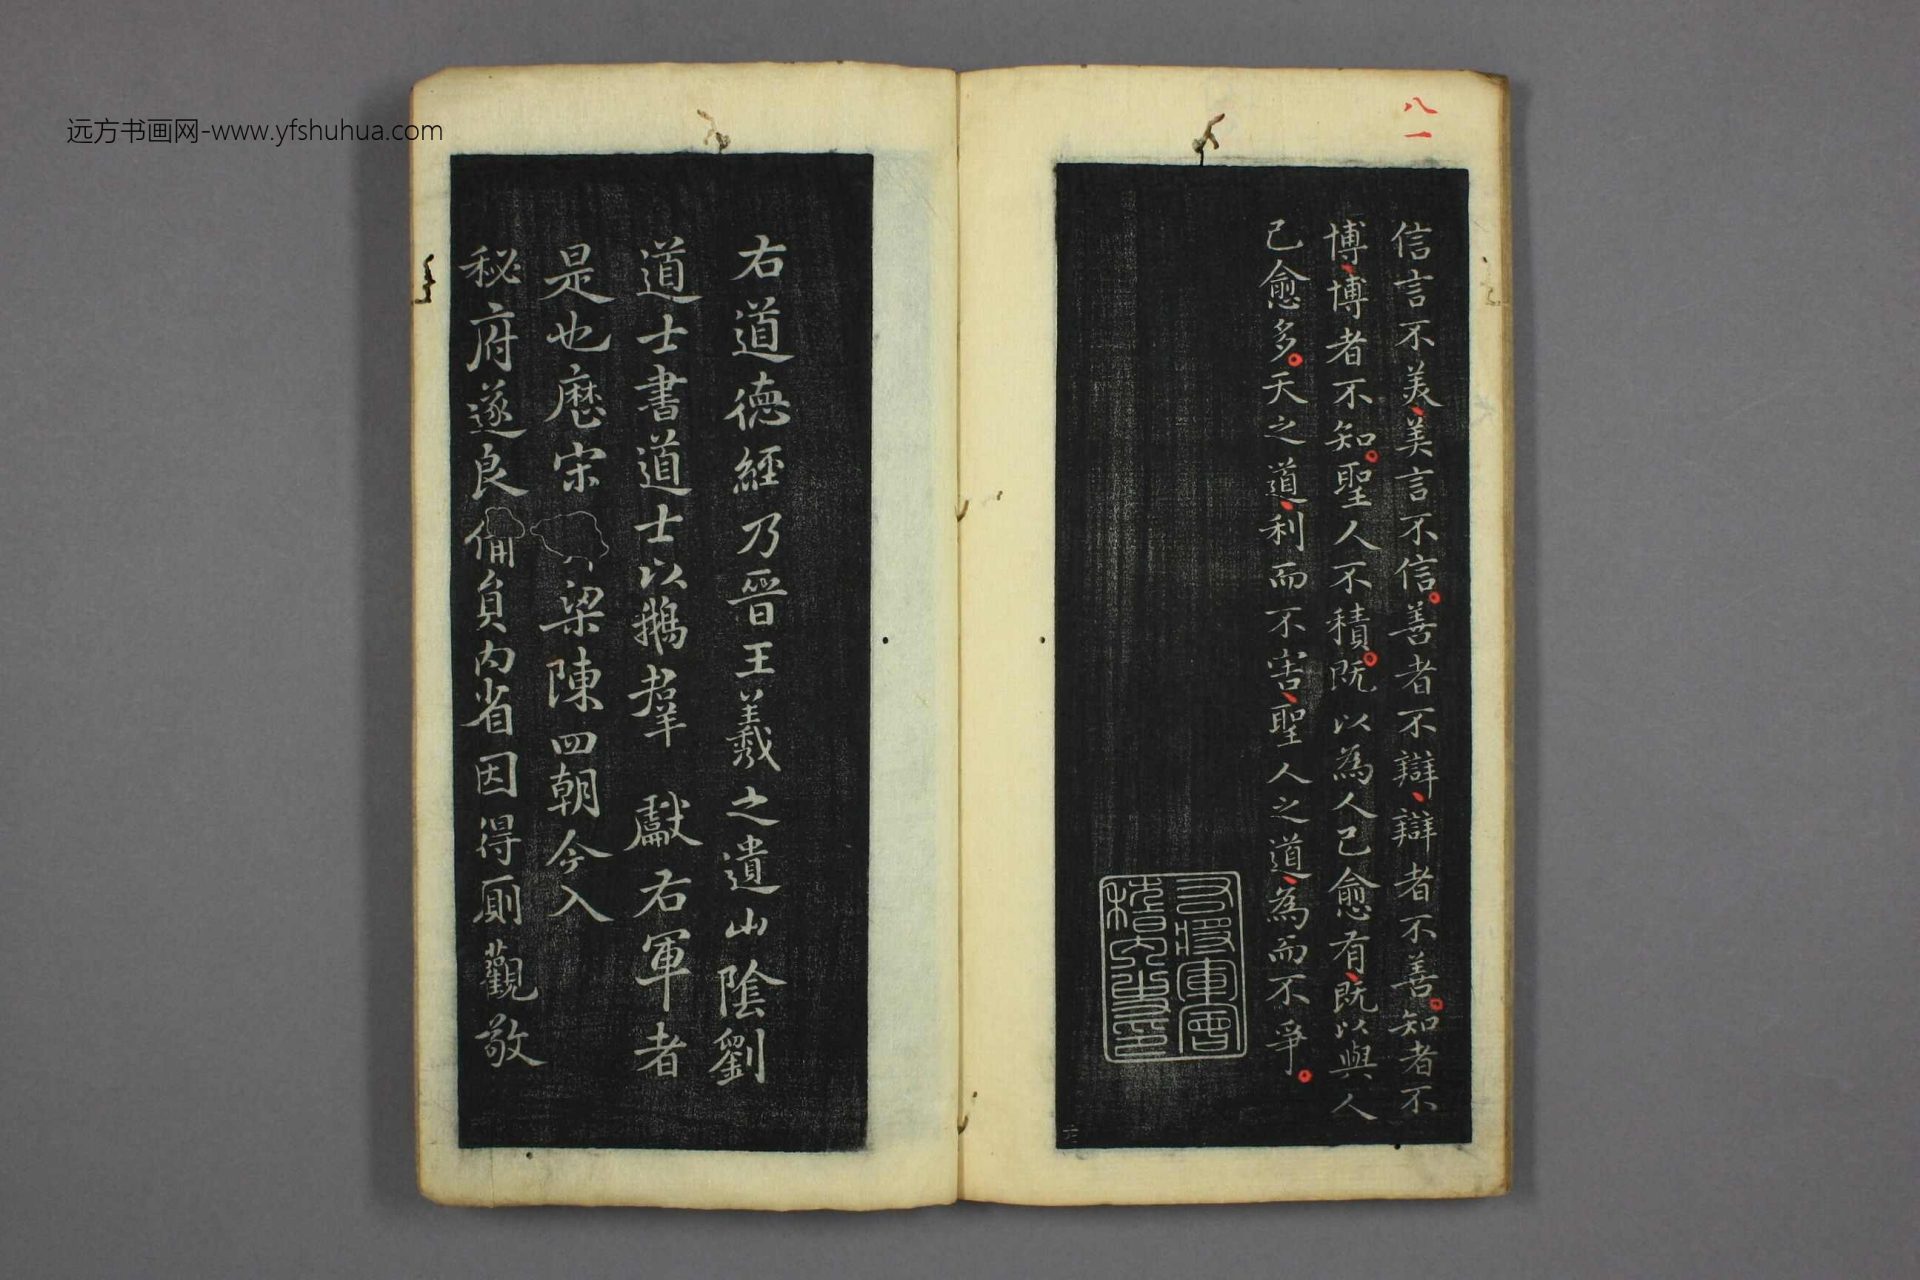 远方书画网-www.yfshuhua.com
八一
信言不美美言不信善者不辯辯者不善知者不
博博者不知聖人不積既以為人己愈有既以與人
己愈多天之道利而不害聖人之道為而不爭
右將軍會
稽內史印
右道德經乃晉王羲之遺山陰劉
道士書道士以鵝群獻右軍者
是也歷宋梁陳四朝今入
秘府遂良備員內省因得廁觀敬